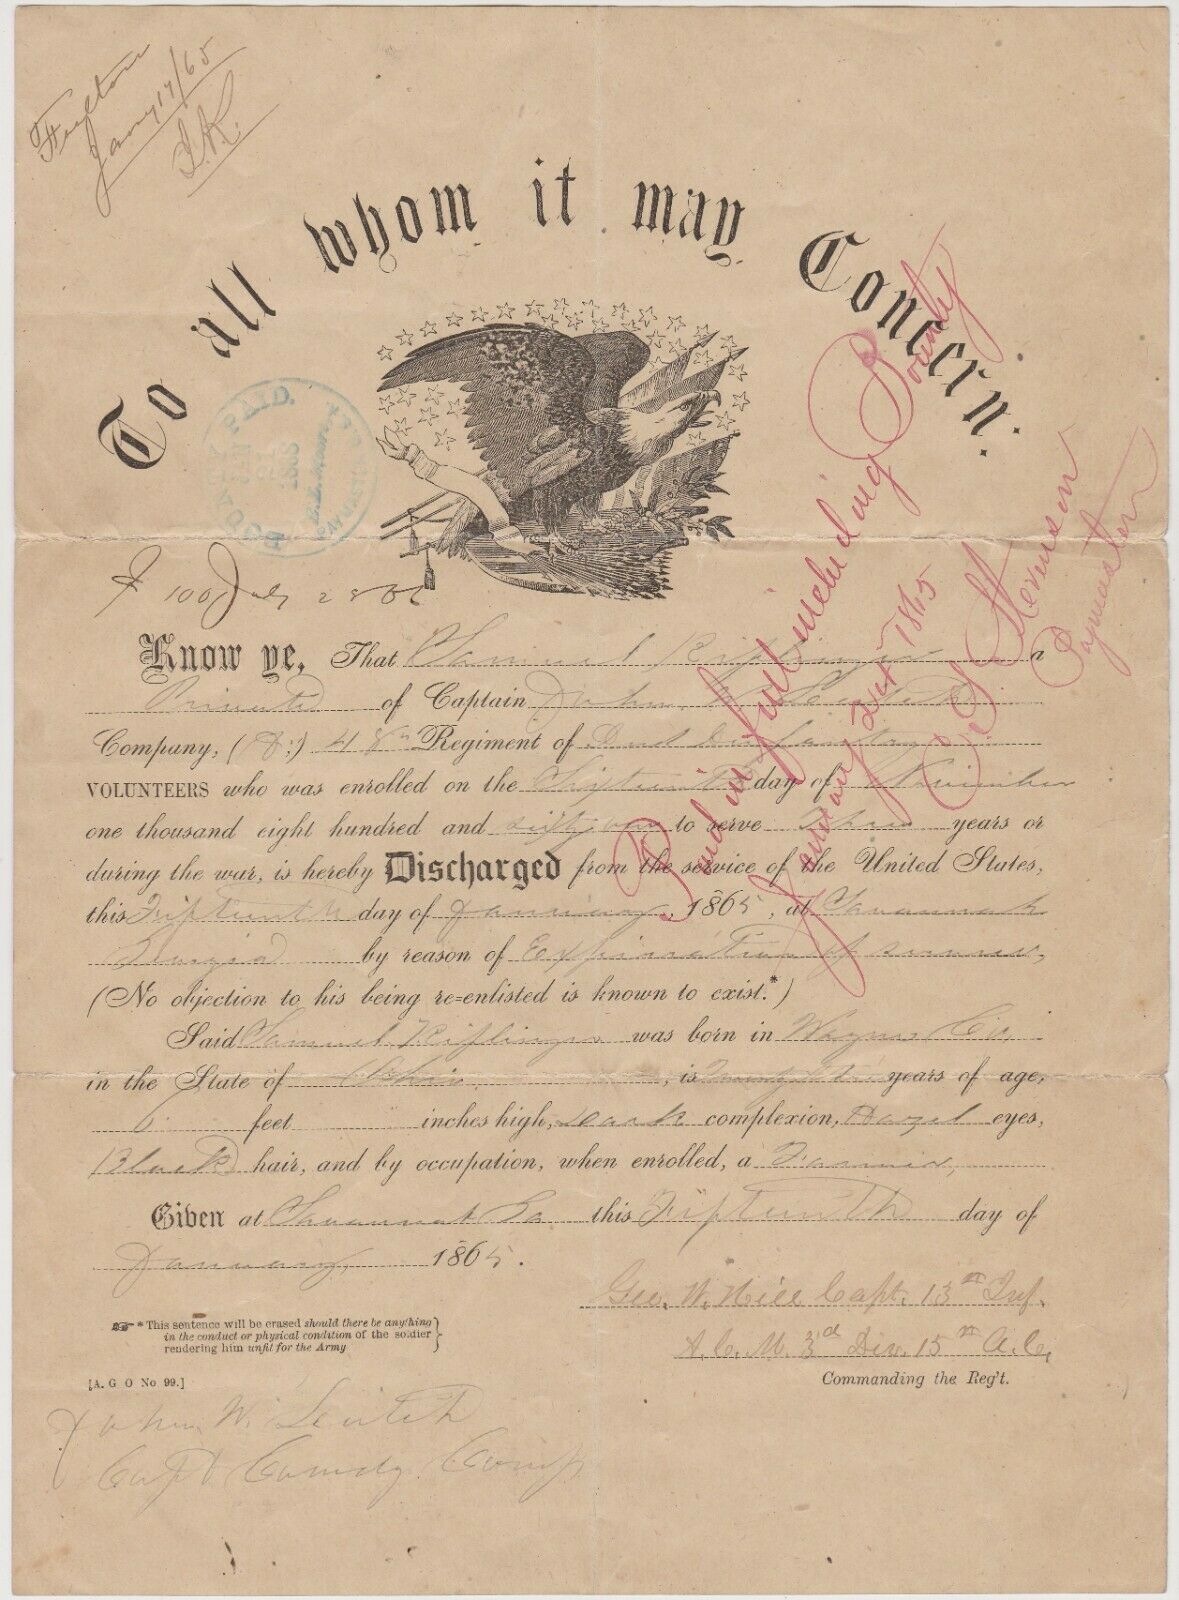 Fulton
Jany 17/65
S.K.
To all whom it may Concern.
BOUNTY PAID.
$100 July 28 66
Know ye, That Samuel a
Private of Captain John W.
Company, (A:) 48th Regiment of Ind Infantry
VOLUNTEERS who was enrolled on the day of November
one thousand eight hundred and sixty one to serve Three years or
during the war, is hereby Discharged from the service of the United States,
this Fifteenth day of January, 1865, at Savannah
Georgia by reason of Expiration of service,
(No objection to his being re-enlisted is known to exist.*)
Said Samuel was born in Wayne Co,
in the State of Ohio, is Twenty years of age,
6 feet " inches high, Dark complexion, Hazel eyes,
Black hair, and by occupation, when enrolled, a Farmer,
Given at Savannah Ga. this Fifteenth day of
January, 1865.
Geo. W. Hill Capt. 13th Inf.
A.C.M. 3rd Div. 15th A.C.
Commanding the Reg't.
* This sentence will be erased should there be anything
in the conduct or physical condition of the soldier
rendering him unfit for the Army
[A. G O No 99.]
John W.
Capt Comdg Comp
Paid in full including Bounty
January 1865
Stevenson
Paymaster